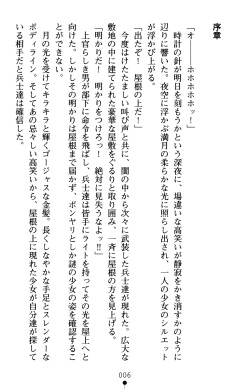 序章
「オ――ホホホホホッ！」
時計の針が明日を刻もうかという深夜に、場違いな高笑いが静寂をかき消すかのように
辺りに響いた。夜空に浮かぶ満月の柔らかな光に照らし出され、一人の少女のシルエット
が浮かび上がる。
「出たぞ！　屋根の上だ！」
今度はけたたましい叫び声と共に、闇の中から次々に武装した兵士達が現れた。広大な
敷地の中に建てられた豪華な屋敷をぐるりと取り囲み、一斉に屋根の方を見上げる。
「明かりだ！　明かりをつけろっ！　絶対に見失うなよ！」
上官らしき男が部下に命令を飛ばし、兵士達は皆手にライトを持ってその光を屋上へと
向けた。しかしその明かりは屋根まで届かず、ボンヤリとしか謎の少女の姿を確認するこ
とができない。
月の光を受けてキラキラと輝くゴージャスな金髪。長くしなやかな手足とスレンダーな
ボディライン。そしてあの忌々しい高笑いから、屋根の上に現れた少女が自分達が探して
いる相手だと兵士達は確信した。
006